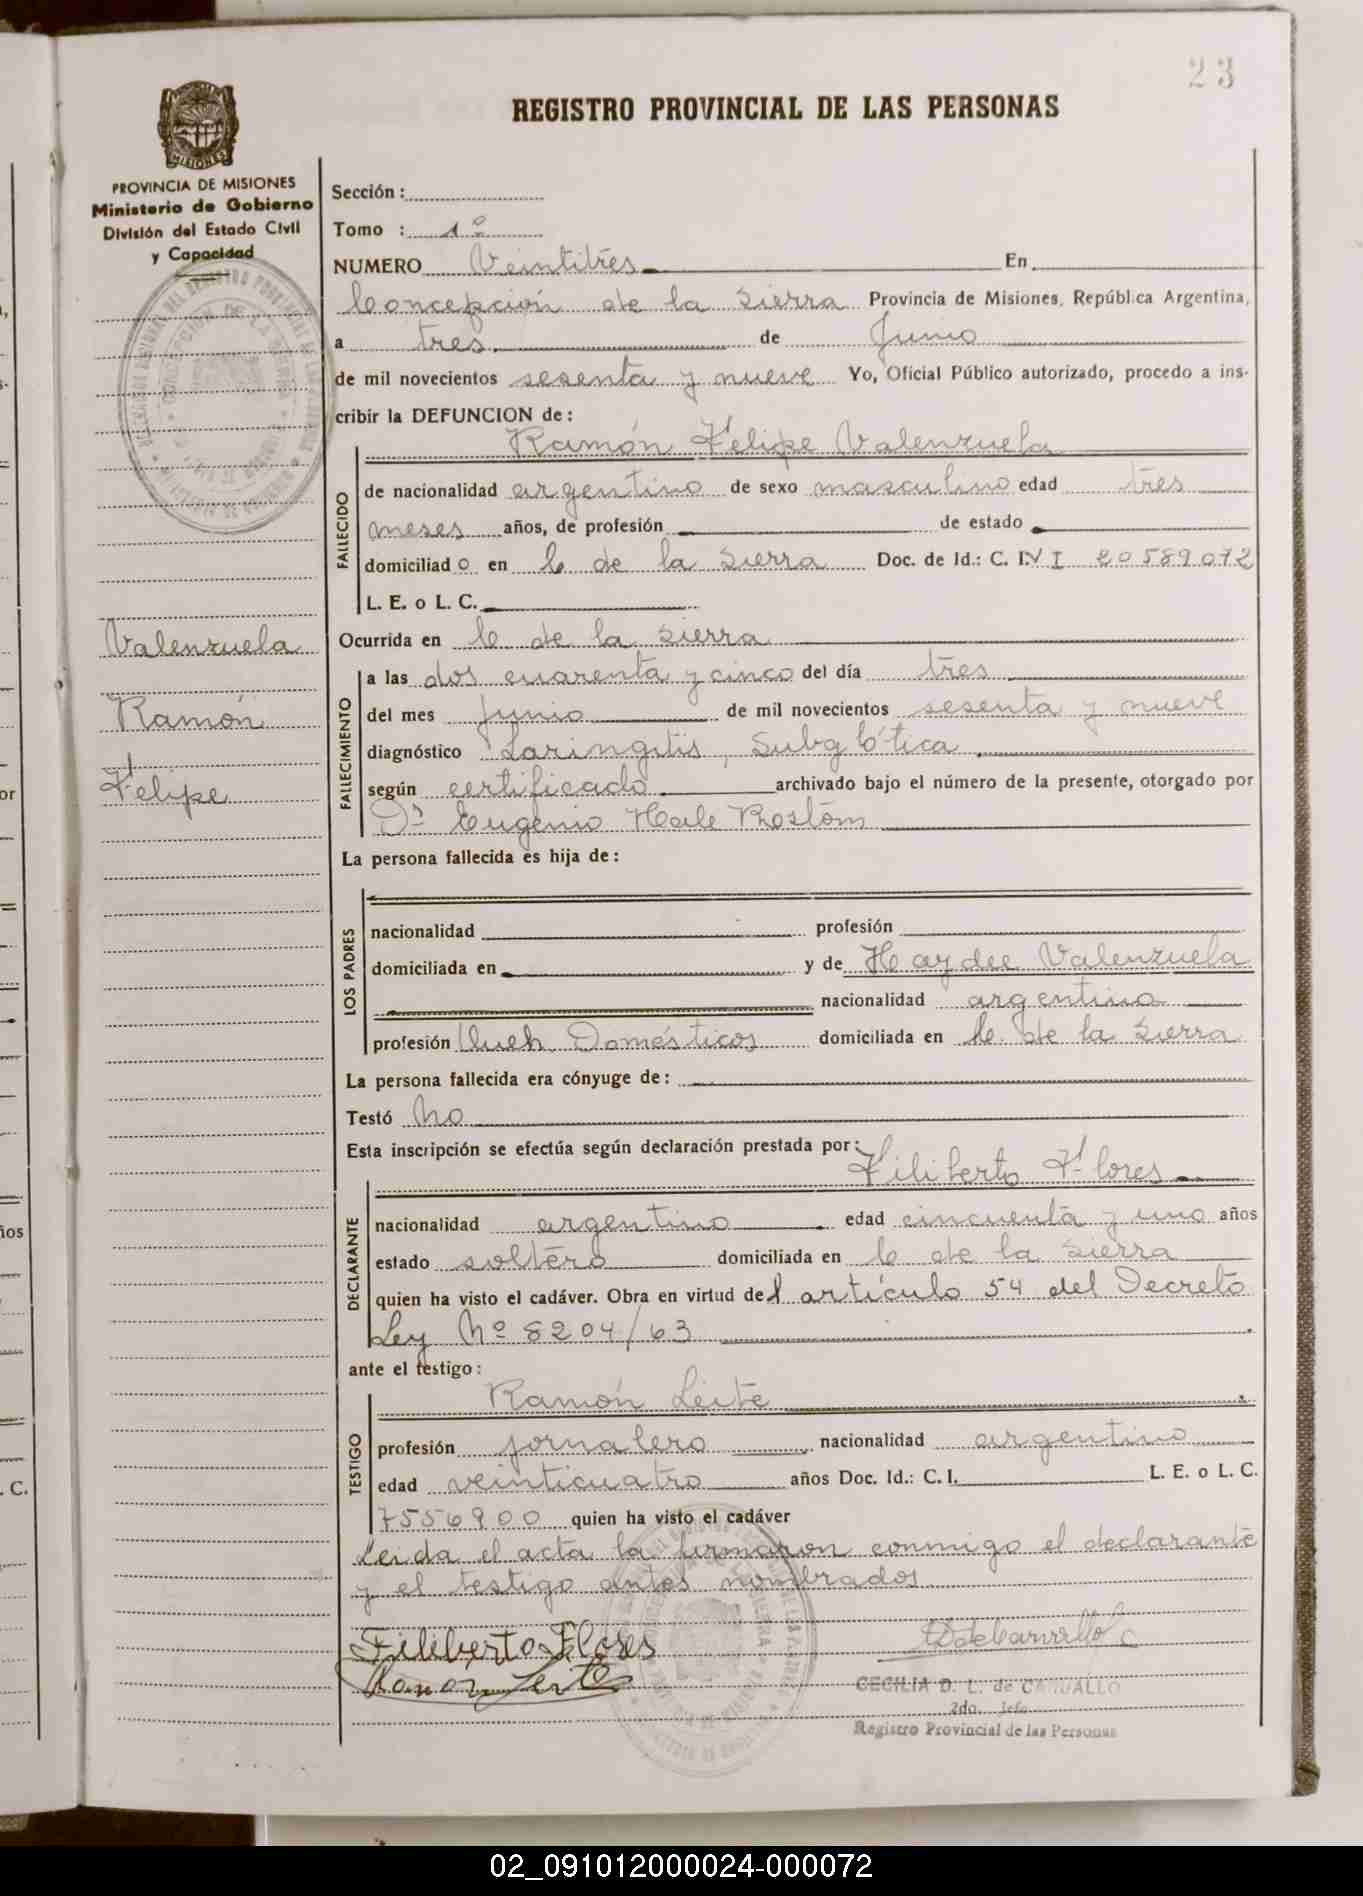 23
REGISTRO PROVINCIAL DE LAS PERSONAS
MISIONES
PROVINCIA DE MISIONES
Ministerio de Gobierno
División del Estado Civil
y Capacidad
Valenzuela
Ramón
Felipe
Sección :
Tomo : 1º
NUMERO Veintitrés En
Concepción de la Sierra Provincia de Misiones, República Argentina,
a tres de Junio
de mil novecientos sesenta y nueve Yo, Oficial Público autorizado, procedo a ins-
cribir la DEFUNCION de :
Ramón Felipe Valenzuela
FALLECIDO
de nacionalidad argentino de sexo masculino edad tres
meses años, de profesión de estado
domiciliado en C. de la Sierra Doc. de Id.: C. I. N I 20589072
L. E. o L. C.
Ocurrida en C. de la Sierra
FALLECIMIENTO
a las dos cuarenta y cinco del día tres
del mes Junio de mil novecientos sesenta y nueve
diagnóstico Laringitis, Subglótica
según certificado archivado bajo el número de la presente, otorgado por
Dr Eugenio Hale Rostom
La persona fallecida es hija de :
LOS PADRES
nacionalidad profesión
domiciliada en y de Haydee Valenzuela
nacionalidad argentina
profesión Queh. Domésticos domiciliada en C. de la Sierra
La persona fallecida era cónyuge de :
Testó no
Esta inscripción se efectúa según declaración prestada por :
Filiberto Flores
DECLARANTE
nacionalidad argentino edad cincuenta y uno años
estado soltero domiciliada en C. de la Sierra
quien ha visto el cadáver. Obra en virtud del artículo 54 del Decreto
Ley Nº 8204/63
ante el testigo :
Ramón Leite
TESTIGO
profesión jornalero nacionalidad argentino
edad veinticuatro años Doc. Id.: C. I. L. E. o L. C.
7556900 quien ha visto el cadáver
Leida el acta la firmaron conmigo el declarante
y el testigo antes nombrados.
Filiberto Flores
Ramon Leite
CECILIA D. L. de CARVALLO
2do. Jefe
Registro Provincial de las Personas
02_091012000024-000072